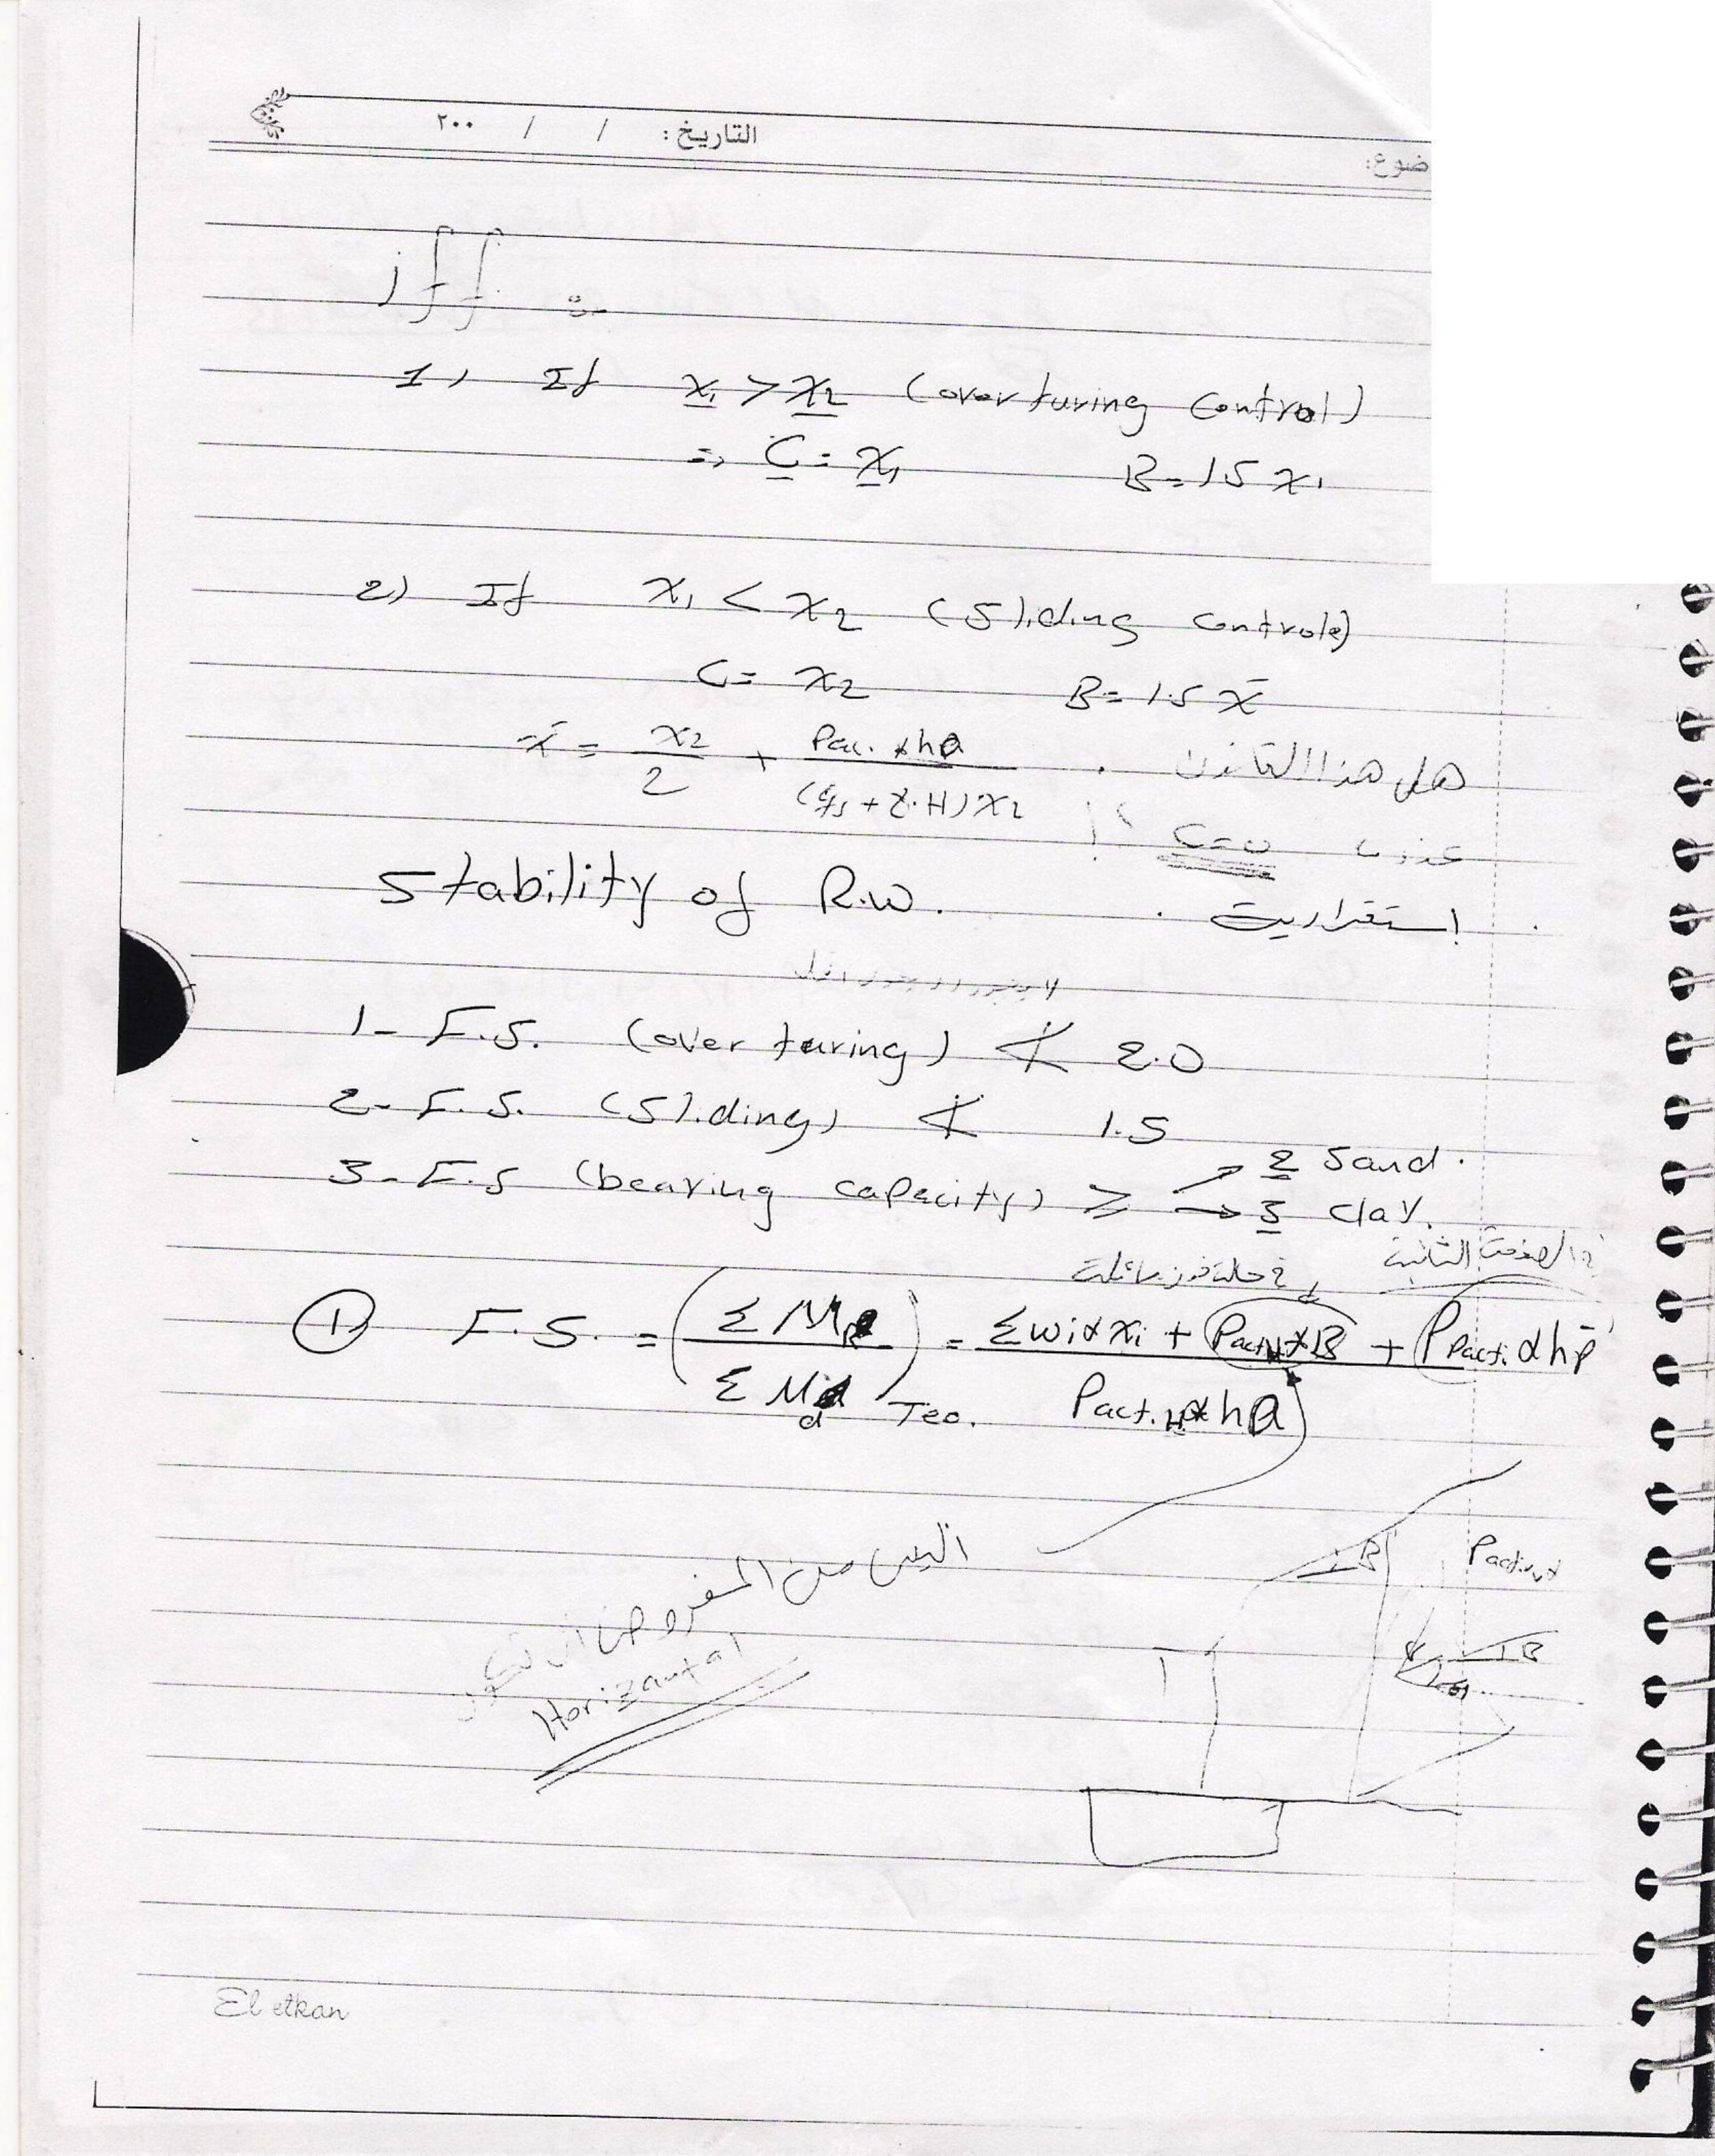 التاريخ: / / ٢٠٠
ضوع:
iff :-
1) If x₁ > x₂ (over turing Control)
=> C = x₁ B = 1.5 x₁
2) If x₁ < x₂ (Sliding controle)
C = x₂ B = 1.5 x̄
x̄ = x₂/2 + Pac. * ha/(qs + γ.H) x₂ . هل هذا القانون
عندما C=0 ؟!
Stability of R.W. . استقرارية
1- F.S. (over turing) ≮ 2.0
2- F.S. (Sliding) ≮ 1.5
3- F.S (bearing capacity) ≥ → 2 Sand.
→ 3 clay.
في الصفحة الثانية
في حالة
① F.S. = (Σ MR / Σ Md) Toe. = Σ wi * xi + Pact.v * B + P Pact. * hp̄ / Pact.H * ha
أليس من المفروض ان تكون
Horizantal
i B
Pactive
i B
El etkan